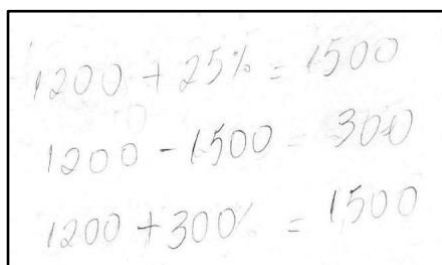 1200 + 25% = 1500
1200 - 1500 = 300
1200 + 300% = 1500